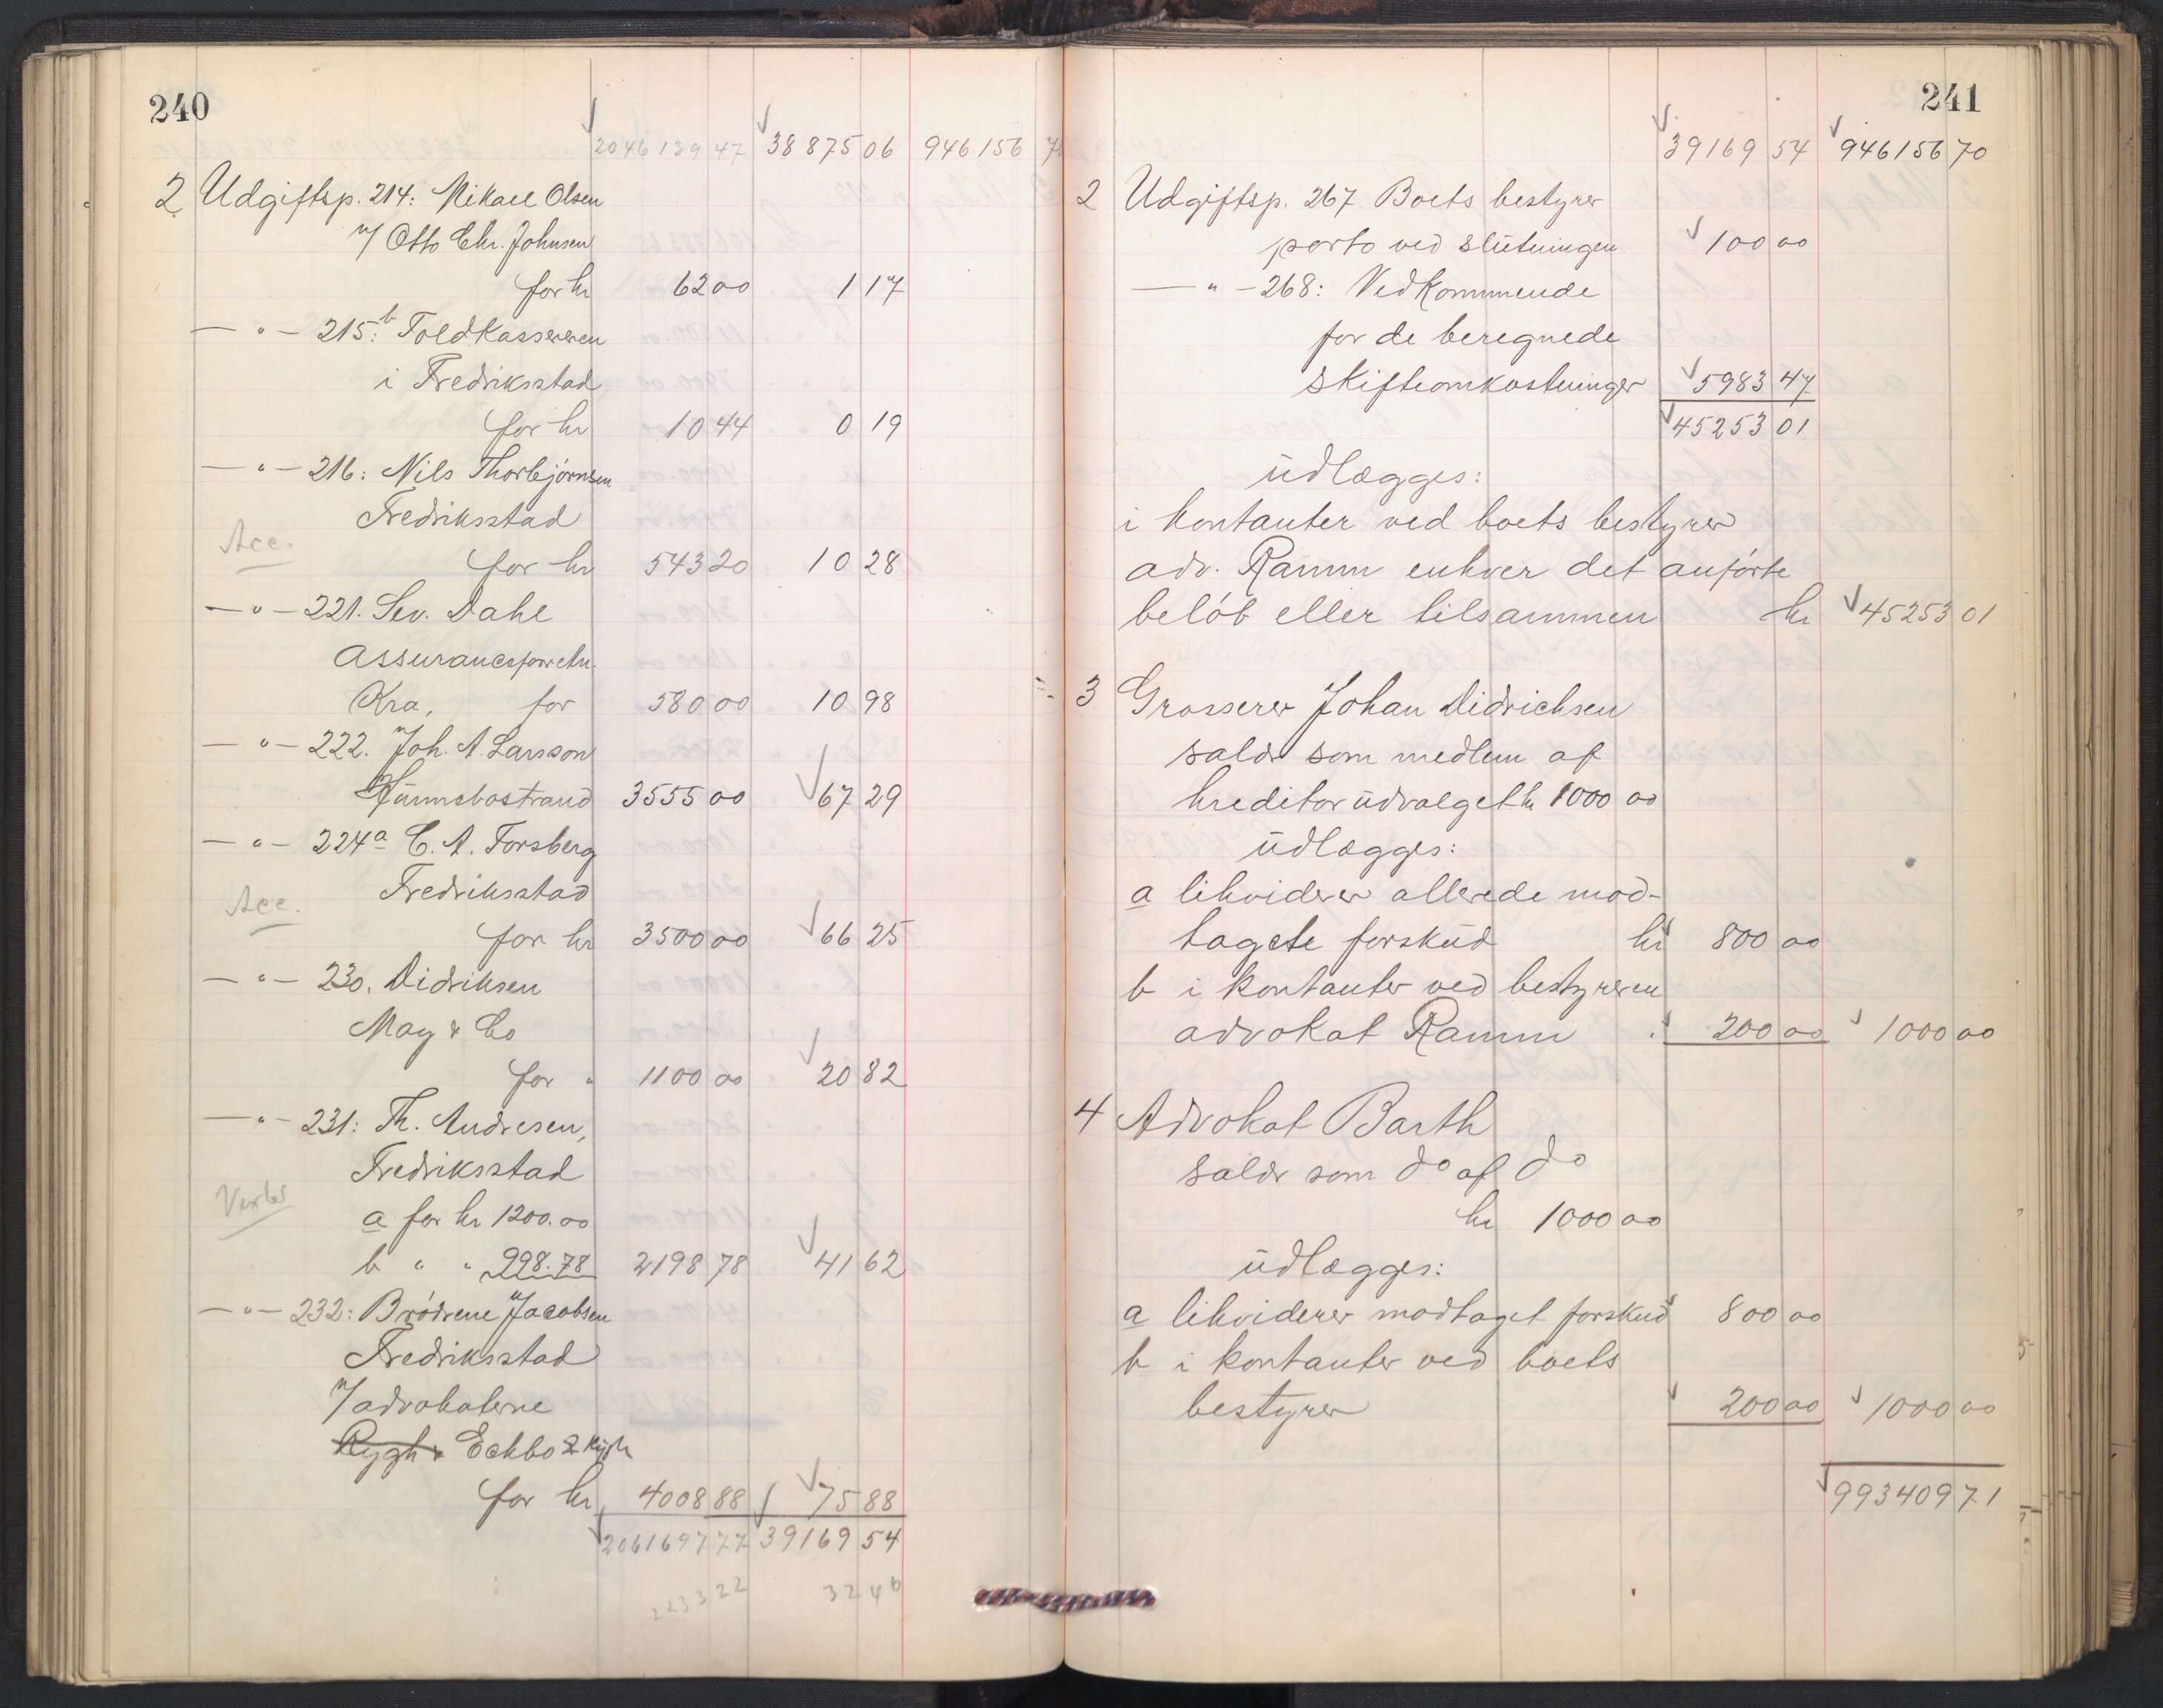 240
2046139 47 38875 06 946156 7
2 Udgiftsp. 214: Mikael Olsen
v/ Otto Chr. Johnsen
for kr 62 00 1 17
— " — 215:b Toldkassereren
i Fredriksstad
for kr 10 44 0 19
— " — 216: Nils Thorbjörnsen
Fredriksstad
Acc.
for kr 543 20 10 28
— " — 221. Sev. Dahl
Assuranceforretn.
Kra, for 580 00 10 98
— " — 222. Joh. A. Larsson
Hunnebostrand 3555 00 67 29
— " — 224a C. A. Forsberg
Fredriksstad
Acc.
for kr 3500 00 66 25
— " — 230. Didriksen
May & Co
for " 1100 00 20 82
— " — 231: Th. Andresen,
Fredriksstad
Verks
a for kr 1200.00
b " " 998.78 2198 78 41 62
— " — 232: Brödrene Jacobsen
Fredriksstad
v/ advokaterne
Rygh & Eckbo & Rygh
for kr 4008 88 75 88
2061697 77 39169 54
2233 22 32 46
241
39169 54 946156 70
2 Udgiftsp. 267 Boets bestyrer
porto ved slutningen 100 00
— " — 268: Vedkommende
for de beregnede
skifteomkostninger 5983 47
45253 01
udlægges:
i kontanter ved boets bestyrer
adv. Ramm enhver det anförte
belöb eller tilsammen kr 45253 01
3 Grosserer Johan Didrichsen
salær som medlem af
kreditorudvalget kr 1000 00
udlægges:
a likviderer allerede mod-
tagete forskud kr 800 00
b i kontanter ved bestyreren
advokat Ramm " 200 00 1000 00
4 Advokat Barth
salær som do af do
kr 1000 00
udlægges:
a likviderer modtaget forskud 800 00
b i kontanter ved boets
bestyrer 200 00 1000 00
993409 71